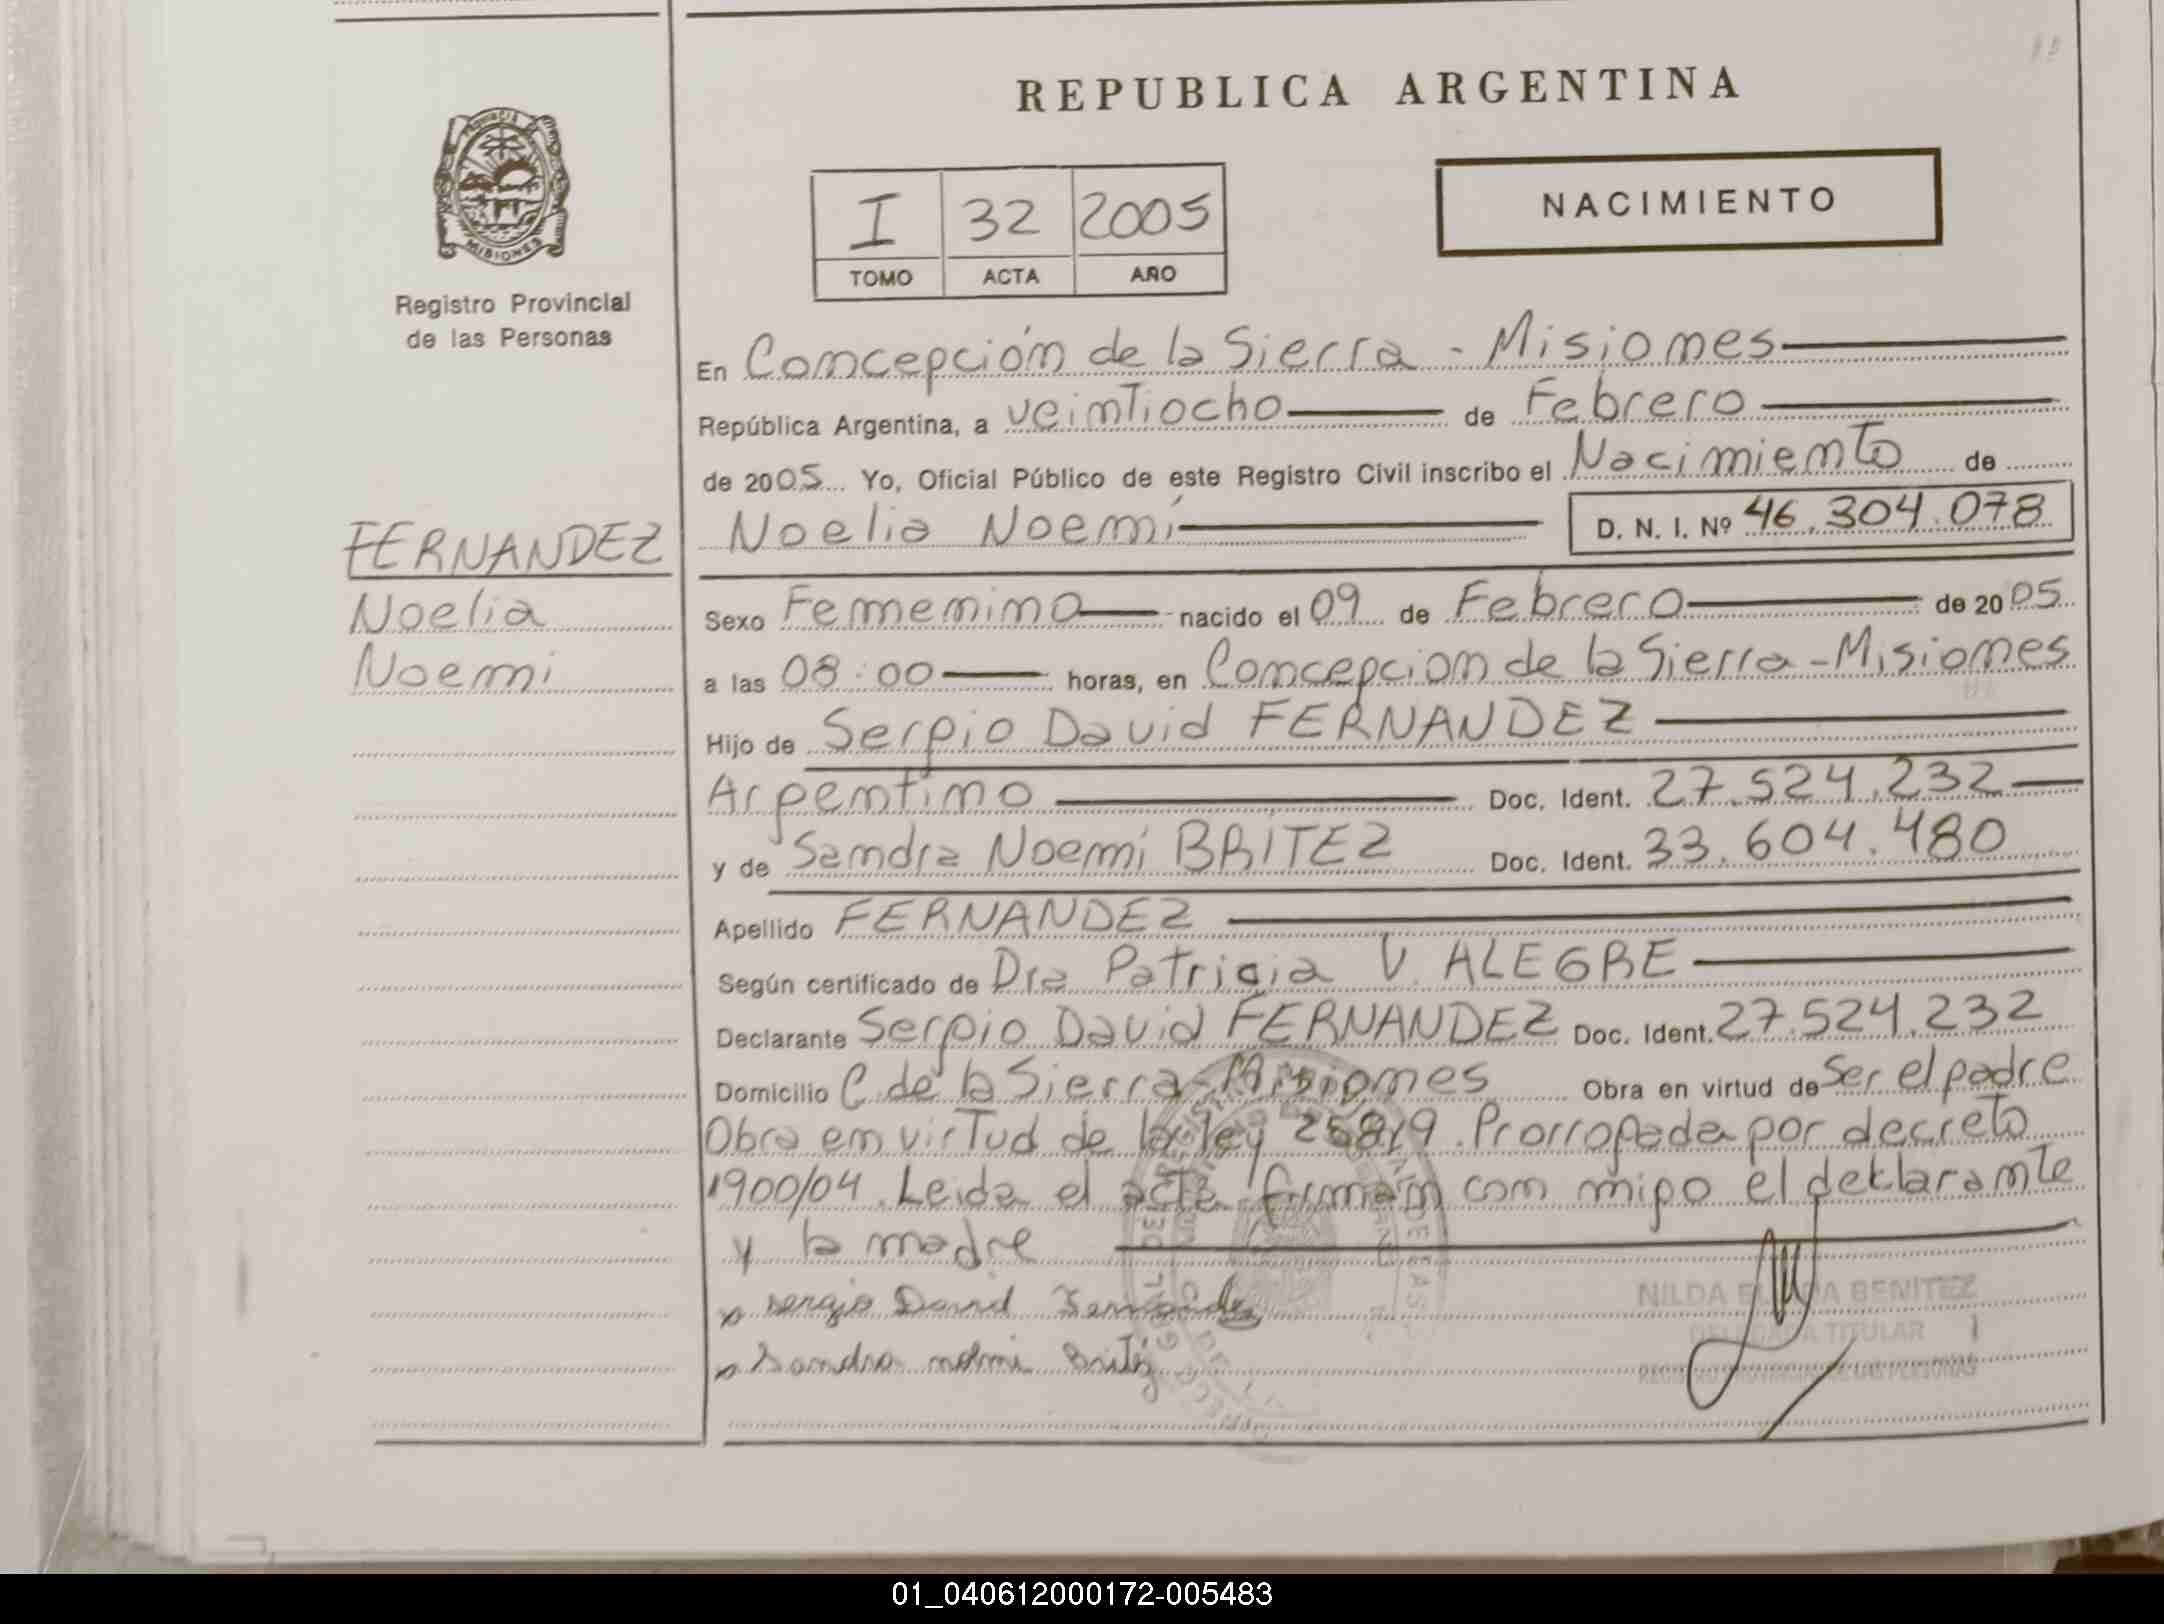 REPUBLICA ARGENTINA
PROVINCIA DE
MISIONES
Registro Provincial
de las Personas
I 32 2005
TOMO ACTA AÑO
NACIMIENTO
En Concepción de la Sierra - Misiones
República Argentina, a veintiocho de Febrero
de 2005 Yo, Oficial Público de este Registro Civil inscribo el Nacimiento de
Noelia Noemí D. N. I. Nº 46.304.078
FERNANDEZ
Noelia
Noemi
Sexo Femenino nacido el 09 de Febrero de 2005
a las 08:00 horas, en Concepcion de la Sierra - Misiones
Hijo de Sergio David FERNANDEZ
Argentino Doc. Ident. 27.524.232
y de Sandra Noemí BRITEZ Doc. Ident. 33.604.480
Apellido FERNANDEZ
Según certificado de Dra Patricia V. ALEGRE
Declarante Sergio David FERNANDEZ Doc. Ident. 27.524.232
Domicilio C. de la Sierra - Misiones Obra en virtud de Ser el padre
Obra en virtud de la ley 25819. Prorrogada por decreto
1900/04. Leida el acta firman con migo el deklarante
y la madre
Sergio David Fernandez
Sandra noemi Britez
NILDA BENITEZ
DELEGADA TITULAR
REGISTRO PROVINCIAL DE LAS PERSONAS
01_040612000172-005483